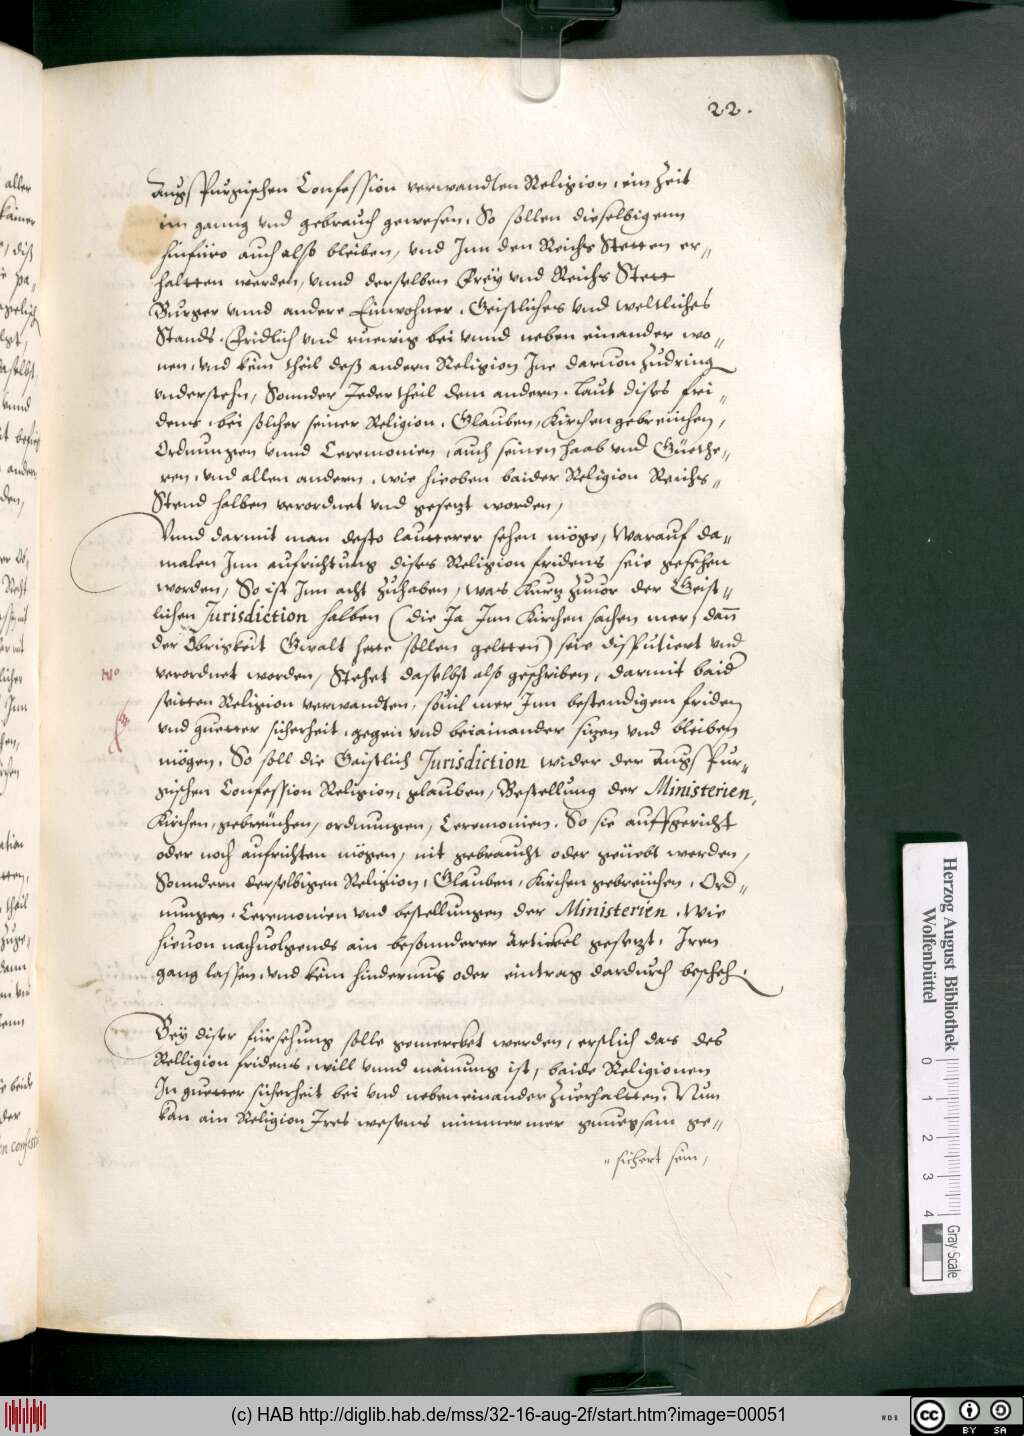 22.
Augspurgischen Confession verwandten Religion, ein Zeit
im ganng vnd gebrauch gewesen, So sollen dieselbigenn
hinfüro auch also bleiben, vnd Inn den Reichs Stetten er„
haltten werden, vnnd derselben Frey vnd Reichs Stett
Burger vnnd andere Einwohner, Geistliches vnd weltliches
Stands, Fridlich vnd ruewig bei vnnd neben einander wo„
nen, vnd kein theil deß andern Religion Ine daruon Zudring
vnderstehn, Sonnder Jeder theil dem andern, laut dises fri„
dens, bei solcher seiner Religion, Glauben, Kirchengebreuchen,
Ordnungen vnnd Ceremonien, auch seinen haab vnd Güethe„
ren, vnd allen andern, wie hieoben baider Religion Reichs„
Stend halben verordnet vnd gesetzt worden,
Vnnd darmit man desto lautterer sehen möge, Warauf da„
malen Inn aufrichtung dises Religion fridens seie gesehen
worden, So ist Inn acht Zuhaben, was Kurtz Zuuor der Geist„
lichen Jurisdiction halben (die Ja Inn Kirchen sachen mer, dann
der Obrigkeit Gwalt hette sollen geltten) seie disputiert vnd
N° verordnet worden, Stehet daselbst also geschriben, darmit baid
seitten Religion verwandten, souil mer Inn bestendigem friden
vnd guetter sicherheit, gegen vnd beiainander sitzen vnd bleiben
mögen, So soll die Gaistlich Jurisdiction wider der Augspur„
gischen Confession Religion, glauben, Bestellung der Ministerien,
Kirchen, gebreüchen, ordnungen, Ceremonien, So sie auffgericht
oder noch aufrichten mögen, nit gebraucht oder geüebt werden,
Sonndern derselbigen Religion, Glauben, Kirchen gebreüchen, Ord„
nungen, Ceremonien vnd bestellungen der Ministerien, Wie
hieuon nachuolgends ain besonnderer Artickel gesetzt, Iren
gang lassen, vnd kein hindernus oder eintrag dardurch bescheh.
Bey diser fürsehung solle gemercket werden, erstlich das des
Relligion fridens, will vnnd mainung ist, baide Religionen
In guetter sicherheit bei vnd nebeneinander Zuerhaltten, Nun
kan ain Religion Ires wesens nimmermer gnuegsam ge„
„sichert sein,
Herzog August Bibliothek
Wolfenbüttel
0 1 2 3 4
Gray Scale
(c) HAB http://diglib.hab.de/mss/32-16-aug-2f/start.htm?image=00051
WDB
cc BY SA